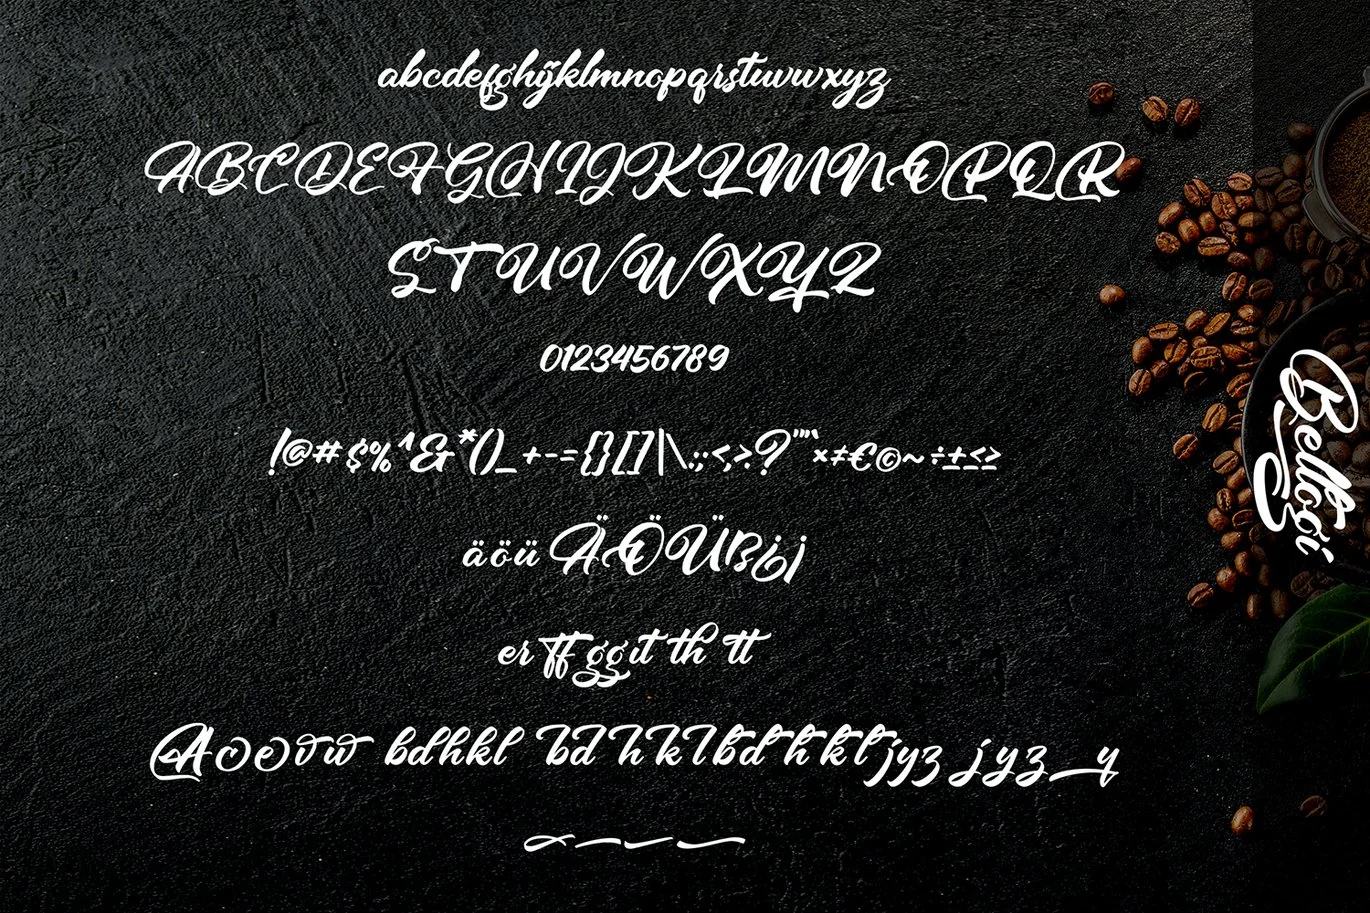 abcdefghijklmnopqrstuvwxyz
ABCDEFGHIJKLMNOPQR
STUVWXYZ
0123456789
!@#$%^&*()_+-={}[]|\.:;<,>.?"'“‘×≠€©~÷±≤≥
äöü ÄÖÜß¿¡
er ff gg it th tt
Aoovw bdhkl bdhkl bdhkl jyz jyz y
Bellogi